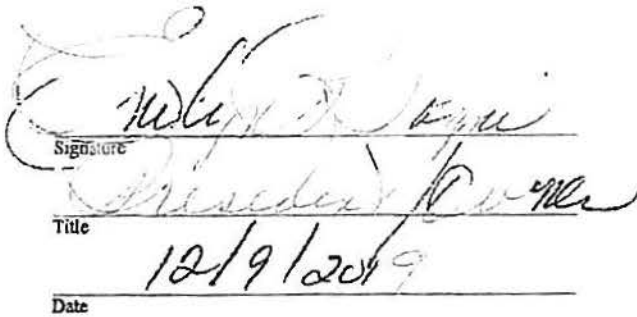 Signature
President/Owner
Title
12/9/2019
Date